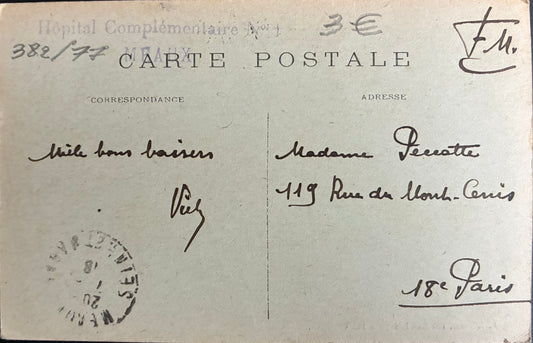 Hôpital Complémentaire N° 1
MEAUX
3€
382/77
F.M.
CARTE POSTALE
CORRESPONDANCE
ADRESSE
Mille bons baisers
Madame
119 Rue du Mont-Cenis
18e Paris
SEINE-ET-MARNE
MEAUX
20
18